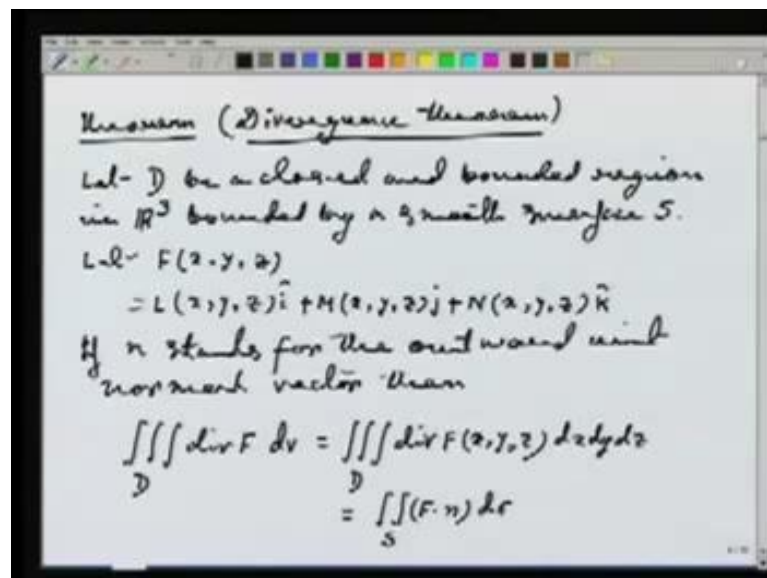 Theorem (Divergence theorem)
Let D be a closed and bounded region
in ℝ³ bounded by a smooth surface S.
Let F(x, y, z)
= L(x, y, z)î + M(x, y, z)j + N(x, y, z)k̂
If n stands for the outward unit
normal vector then
∭ div F dv = ∭ div F(x, y, z) dx dy dz
D D
= ∬(F·n) dσ
S